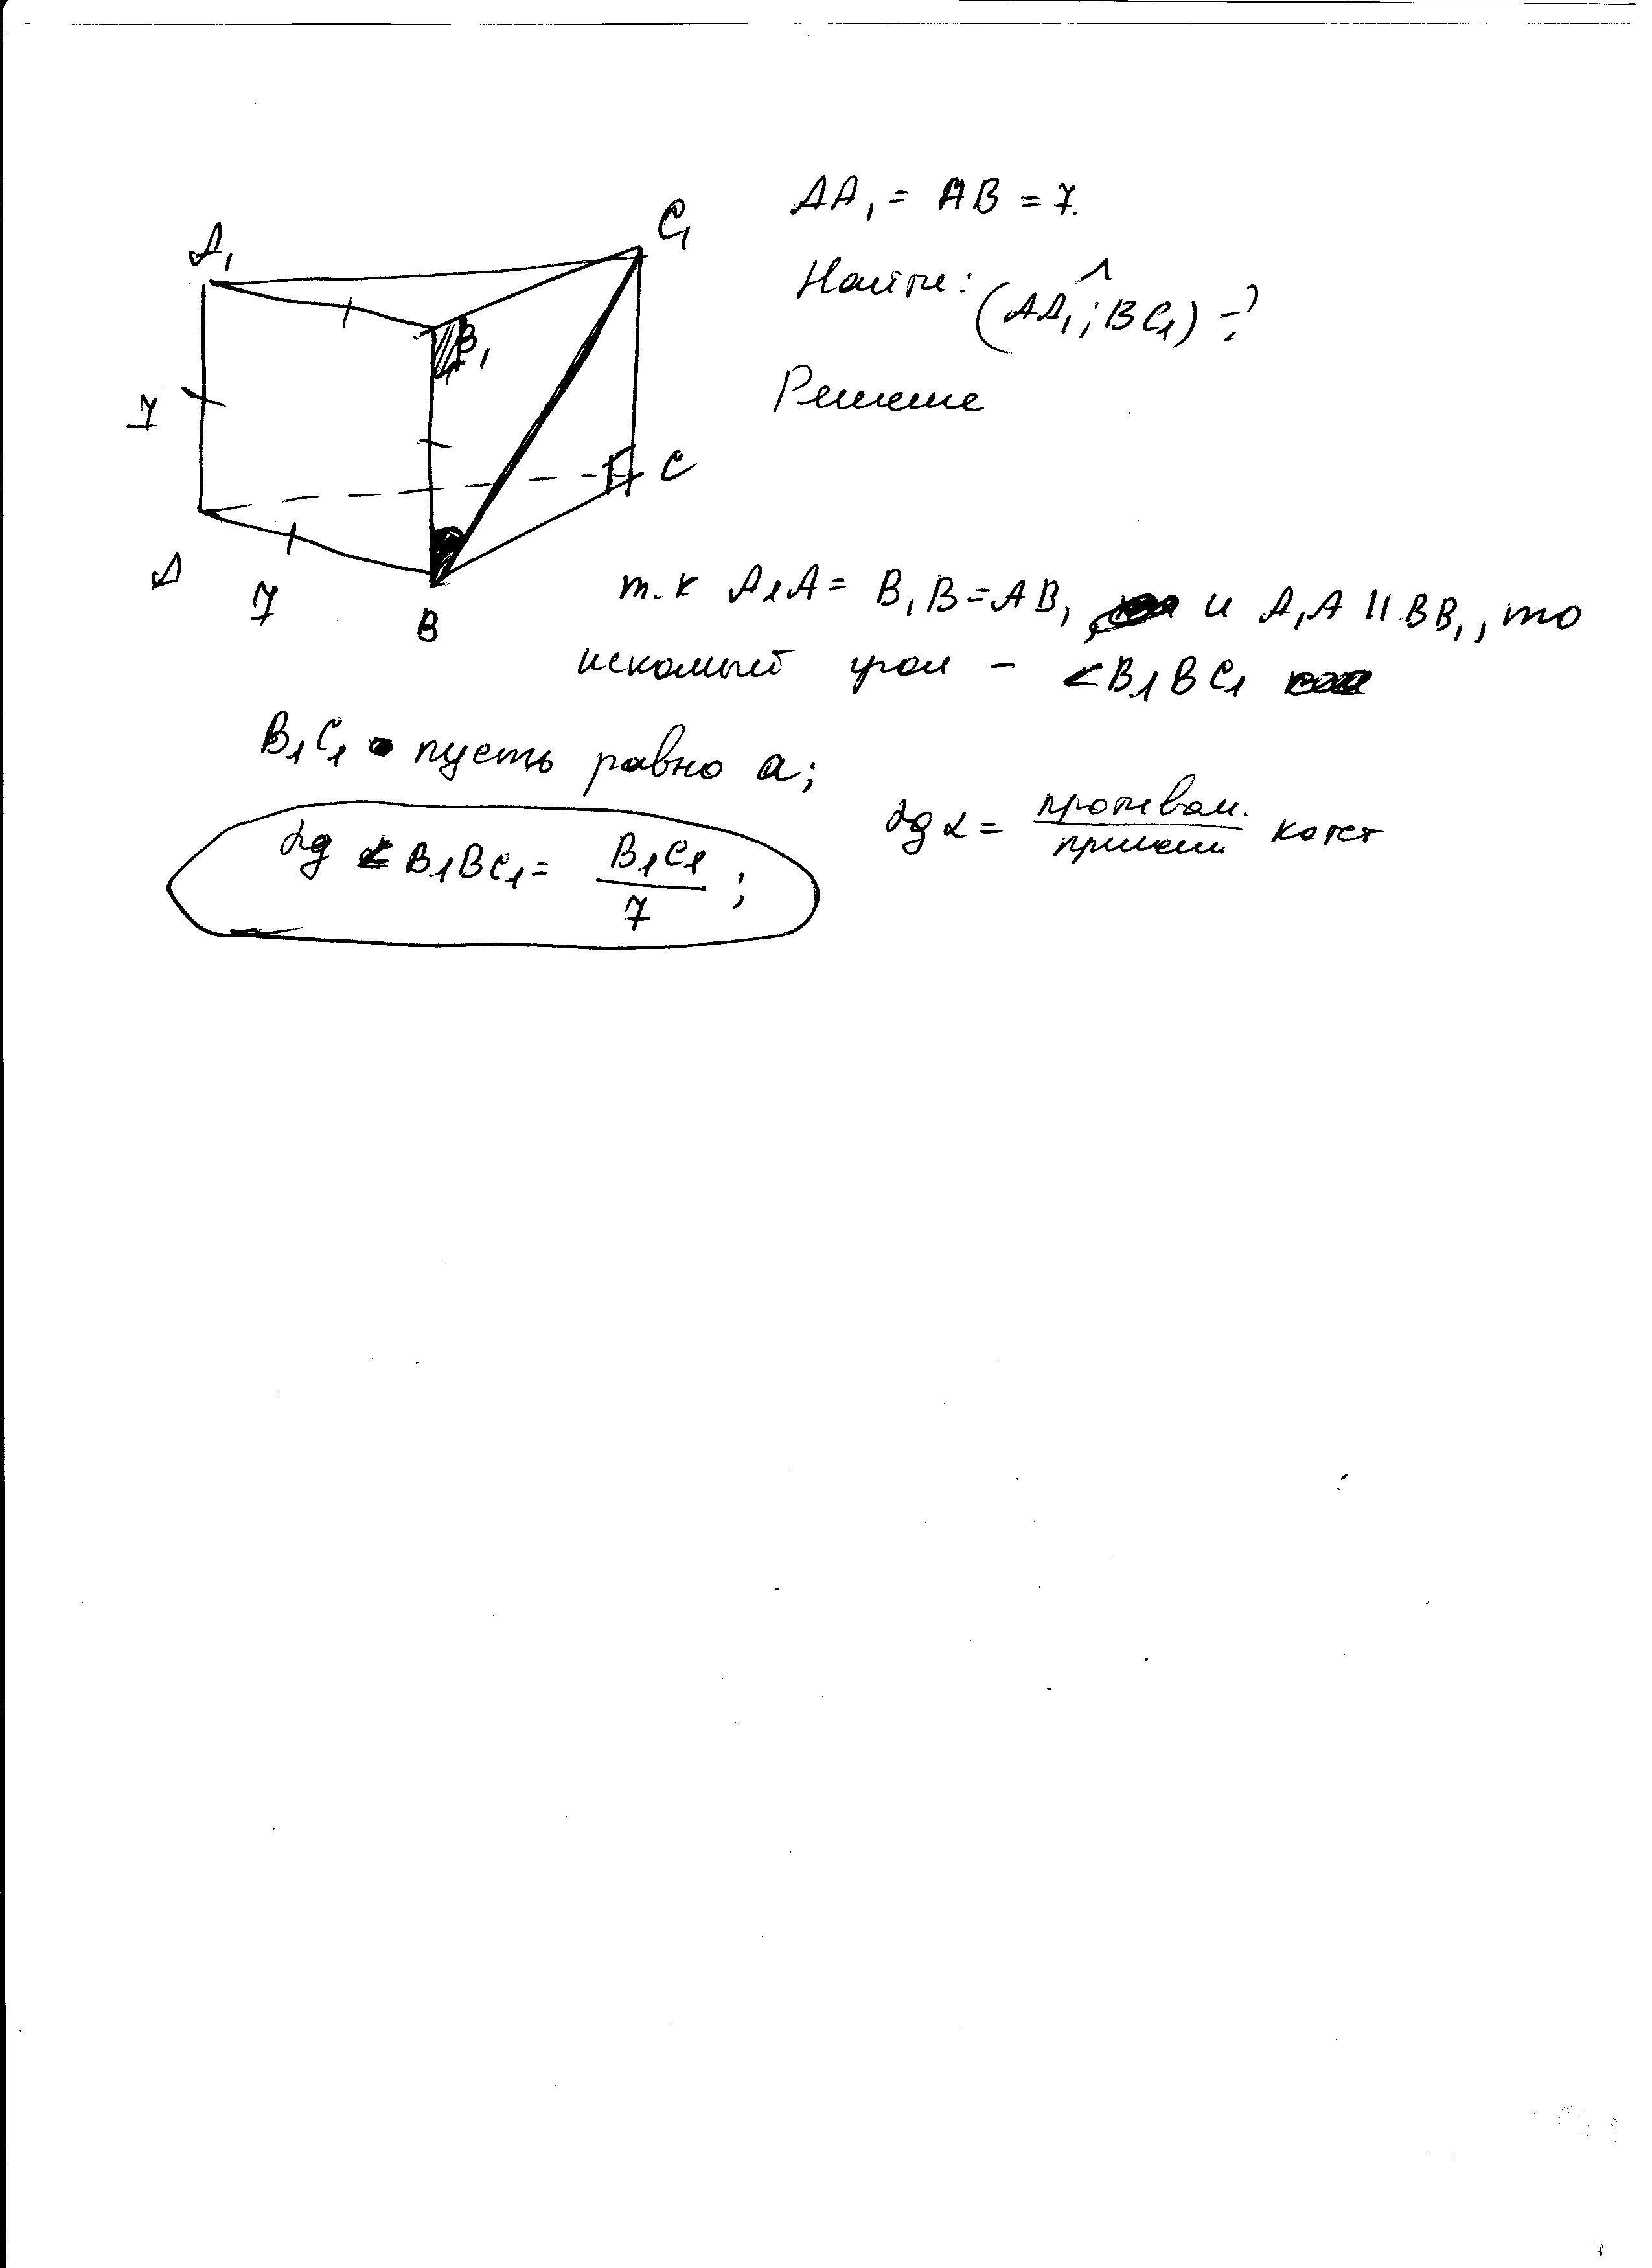 A₁
C₁
B₁
7
C
A
7
B
AA₁ = AB = 7.
Найти: (AA₁ ^; BC₁) - ?
Решение
т.к A₁A = B₁B = AB, и A₁A || BB₁, то
искомый угол – ∠B₁BC₁
B₁C₁ пусть равно a;
tg ∠B₁BC₁ = B₁C₁/7 ;
tg α = противол./прилеж катет